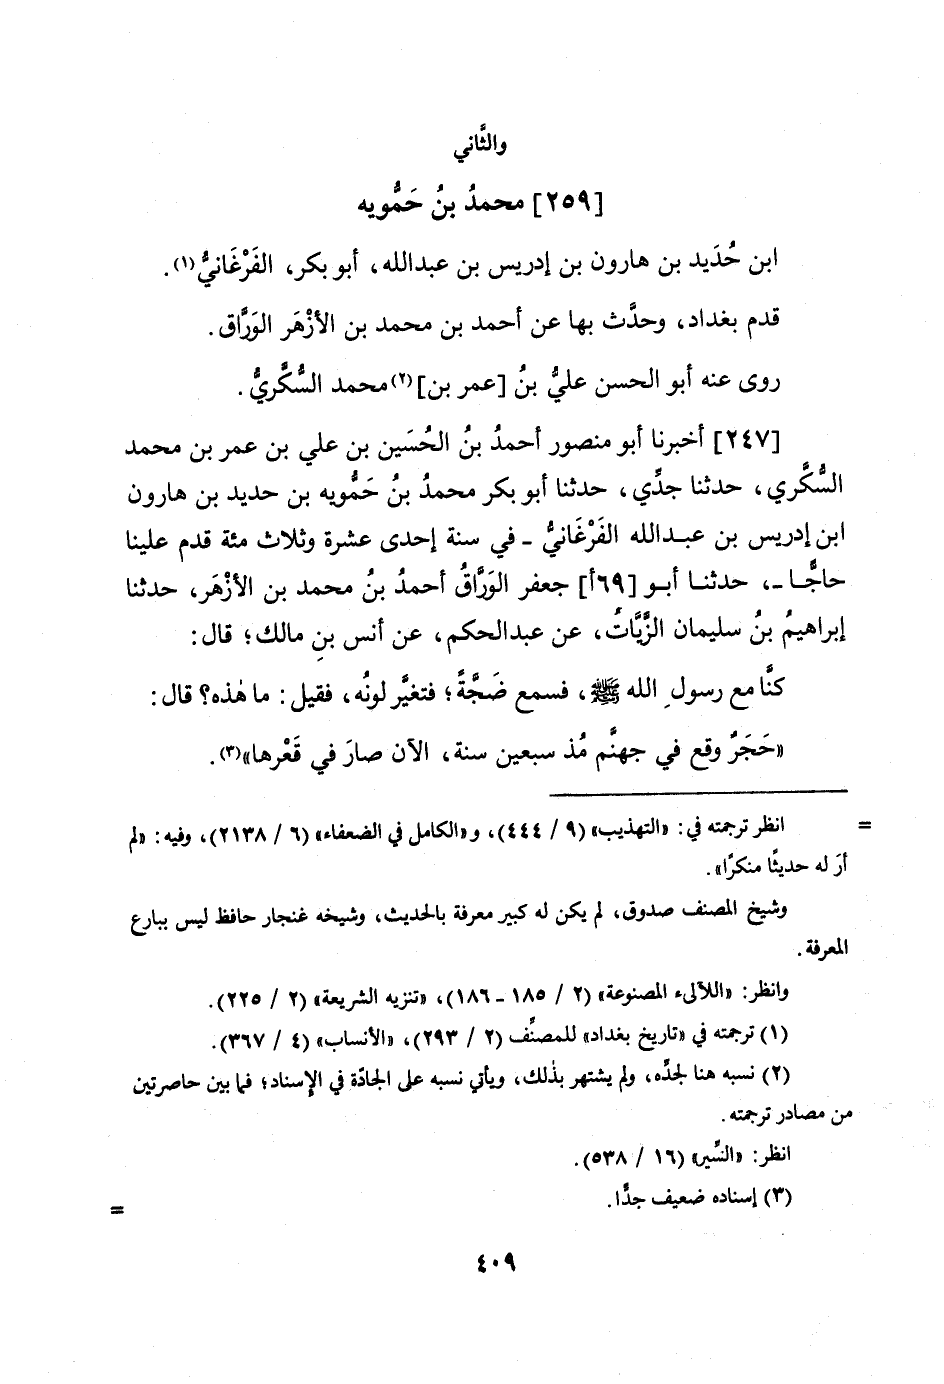 والثَّاني
[٢٥٩] محمدُ بنُ حَمُّويه
ابن حُدَيد بن هارون بن إدريس بن عبدالله، أبو بكر، الفَرْغَانيُّ(١).
قدم بغداد، وحدَّث بها عن أحمد بن محمد بن الأزْهَر الوَرَّاق.
روى عنه أبو الحسن عليُّ بنُ [عمر بن](٢) محمد السُّكَّريُّ.
[٢٤٧] أخبرنا أبو منصور أحمدُ بنُ الحُسَين بن علي بن عمر بن محمد
السُّكَّري، حدثنا جدِّي، حدثنا أبو بكر محمدُ بنُ حَمُّويه بن حديد بن هارون
ابن إدريس بن عبدالله الفَرْغَانيُّ ـ في سنة إحدى عشرة وثلاث مئة قدم علينا
حاجًّا ـ، حدثنا أبو [٦٩أ] جعفر الوَرَّاقُ أحمدُ بنُ محمد بن الأزْهَر، حدثنا
إبراهيمُ بنُ سليمان الزَّيَّاتُ، عن عبدالحكم، عن أنس بنِ مالك؛ قال:
كنَّا مع رسولِ الله ﷺ، فسمع ضَجَّةً؛ فتغيَّر لونُه، فقيل: ما هٰذه؟ قال:
«حَجَرٌ وقع في جهنَّم مُذ سبعين سنة، الآن صارَ في قَعْرها»(٣).
= انظر ترجمته في: «التهذيب» (٩ / ٤٤٤)، و«الكامل في الضعفاء» (٦ / ٢١٣٨)، وفيه: «لم
أرَ له حديثًا منكرًا».
وشيخ المصنف صدوق، لم يكن له كبير معرفة بالحديث، وشيخه غنجار حافظ ليس ببارع
المعرفة.
وانظر: «اللآلىء المصنوعة» (٢ / ١٨٥ ـ ١٨٦)، «تنزيه الشريعة» (٢ / ٢٢٥).
(١) ترجمته في «تاريخ بغداد» للمصنِّف (٢ / ٢٩٣)، «الأنساب» (٤ / ٣٦٧).
(٢) نسبه هنا لجدِّه، ولم يشتهر بذٰلك، ويأتي نسبه على الجادّة في الإسناد؛ فما بين حاصرتين
من مصادر ترجمته.
انظر: «السِّير» (١٦ / ٥٣٨).
(٣) إسناده ضعيف جدًّا.
=
٤٠٩